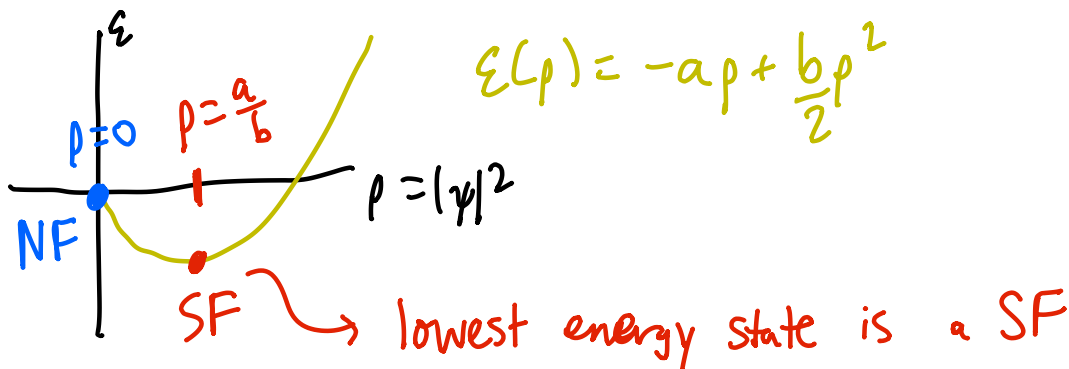 ε
ε(ρ) = -aρ + b/2 ρ²
ρ = a/b
ρ=0
ρ = |ψ|²
NF
SF
lowest energy state is a SF